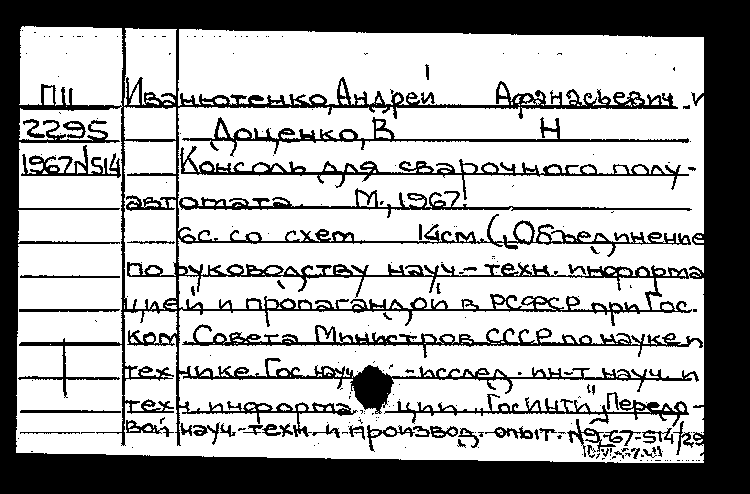 ПII Иваньютенко, Андрей Афанасьевич и
2295 Доценко, В Н
1967 N514 Консоль для сварочного полу-
автомата. М., 1967.
6с. со схем 14см. („Объединение
по руководству науч.- техн. информа
цией и пропагандой в РСФСР при Гос.
ком Совета Министров СССР по науке и
технике. Гос науч -исслед. ин-т науч и
техн. информа ции „ГосИНТИ" „Передо-
вой науч.-техн. и производ. опыт. N9-67-514/29